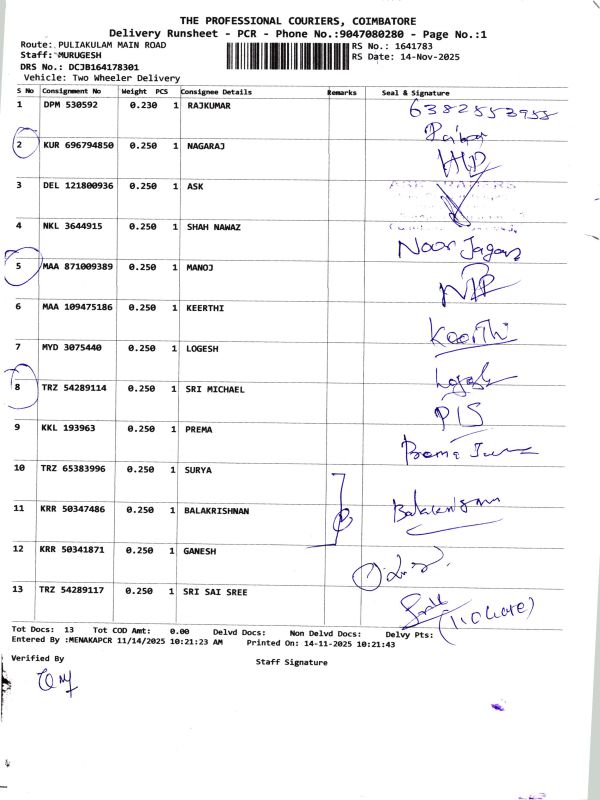 THE PROFESSIONAL COURIERS, COIMBATORE
Delivery Runsheet - PCR - Phone No.:9047080280 - Page No.:1
Route: PULIAKULAM MAIN ROAD RS No.: 1641783
Staff: MURUGESH RS Date: 14-Nov-2025
DRS No.: DCJB164178301
Vehicle: Two Wheeler Delivery
S No Consignment No Weight PCS Consignee Details Remarks Seal & Signature
1 DPM 530592 0.230 1 RAJKUMAR 6382553955
2 KUR 696794850 0.250 1 NAGARAJ
3 DEL 121800936 0.250 1 ASK
4 NKL 3644915 0.250 1 SHAH NAWAZ Noor
5 MAA 871009389 0.250 1 MANOJ
6 MAA 109475186 0.250 1 KEERTHI Keerthi
7 MYD 3075440 0.250 1 LOGESH
8 TRZ 54289114 0.250 1 SRI MICHAEL
9 KKL 193963 0.250 1 PREMA
10 TRZ 65383996 0.250 1 SURYA
11 KRR 50347486 0.250 1 BALAKRISHNAN
12 KRR 50341871 0.250 1 GANESH
13 TRZ 54289117 0.250 1 SRI SAI SREE
Tot Docs: 13 Tot COD Amt: 0.00 Delvd Docs: Non Delvd Docs: Delvy Pts:
Entered By :MENAKAPCR 11/14/2025 10:21:23 AM Printed On: 14-11-2025 10:21:43
Verified By Staff Signature